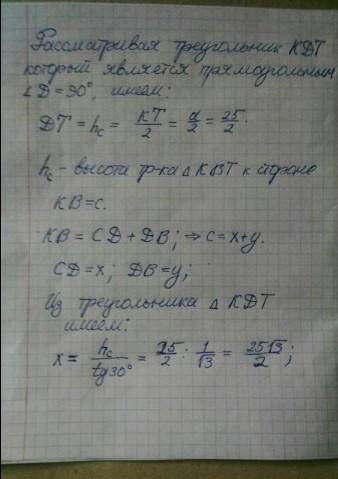 Рассматривая треугольник KDT
который является прямоугольным
∠D = 90°, имеем:
DT = h_c = KT/2 = a/2 = 25/2.
h_c - высота тр-ка Δ KBT к стороне
KB = c.
KB = CD + DB; ⇒ c = x + y.
CD = x; DB = y;
Из треугольника Δ KDT
имеем:
x = h_c/tg30° = 25/2 : 1/√3 = 25√3/2;